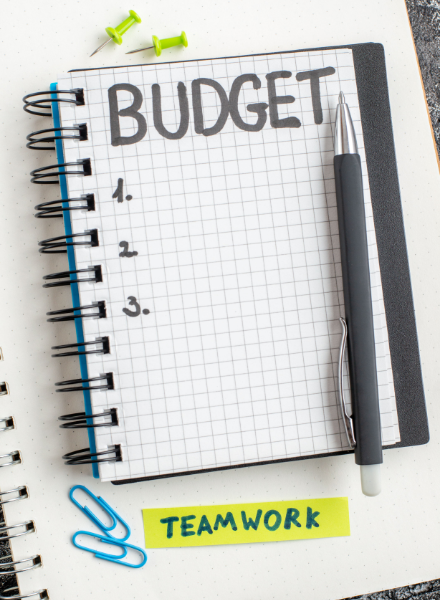 BUDGET
1.
2.
3.
TEAMWORK